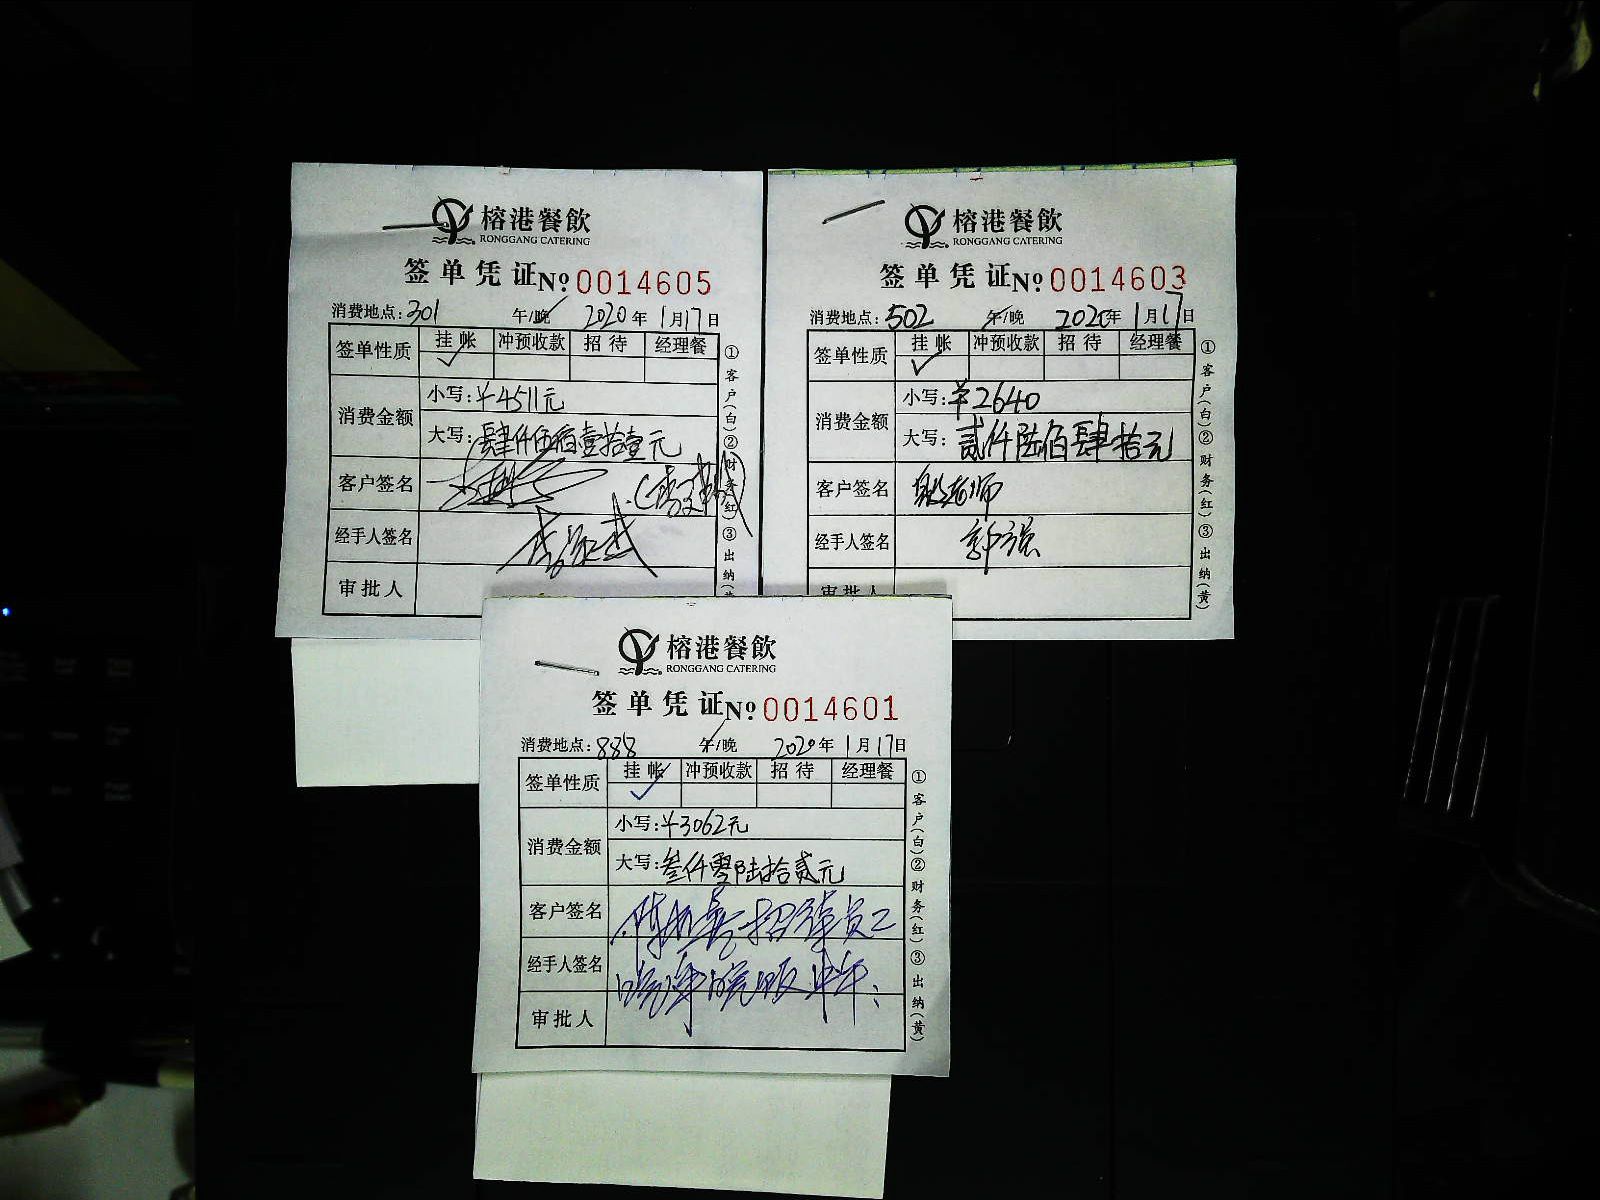 榕港餐飲
RONGGANG CATERING
签单凭证 Nº 0014605
消费地点: 301 午/晚 2020年1月17日
签单性质 挂帐 冲预收款 招待 经理餐
✓
消费金额 小写: ¥4511元
大写: 肆仟伍佰壹拾壹元
客户签名
经手人签名
审批人
①客户(白)②财务(红)③出纳(黄)
榕港餐飲
RONGGANG CATERING
签单凭证 Nº 0014603
消费地点: 502 午/晚 2020年1月17日
签单性质 挂帐 冲预收款 招待 经理餐
✓
消费金额 小写: ¥2640
大写: 贰仟陆佰肆拾元
客户签名 老师
经手人签名 郭强
审批人
①客户(白)②财务(红)③出纳(黄)
榕港餐飲
RONGGANG CATERING
签单凭证 Nº 0014601
消费地点: 888 午/晚 2020年1月17日
签单性质 挂帐 冲预收款 招待 经理餐
✓
消费金额 小写: ¥3062元
大写: 叁仟零陆拾贰元
客户签名 员工
经手人签名
审批人
①客户(白)②财务(红)③出纳(黄)